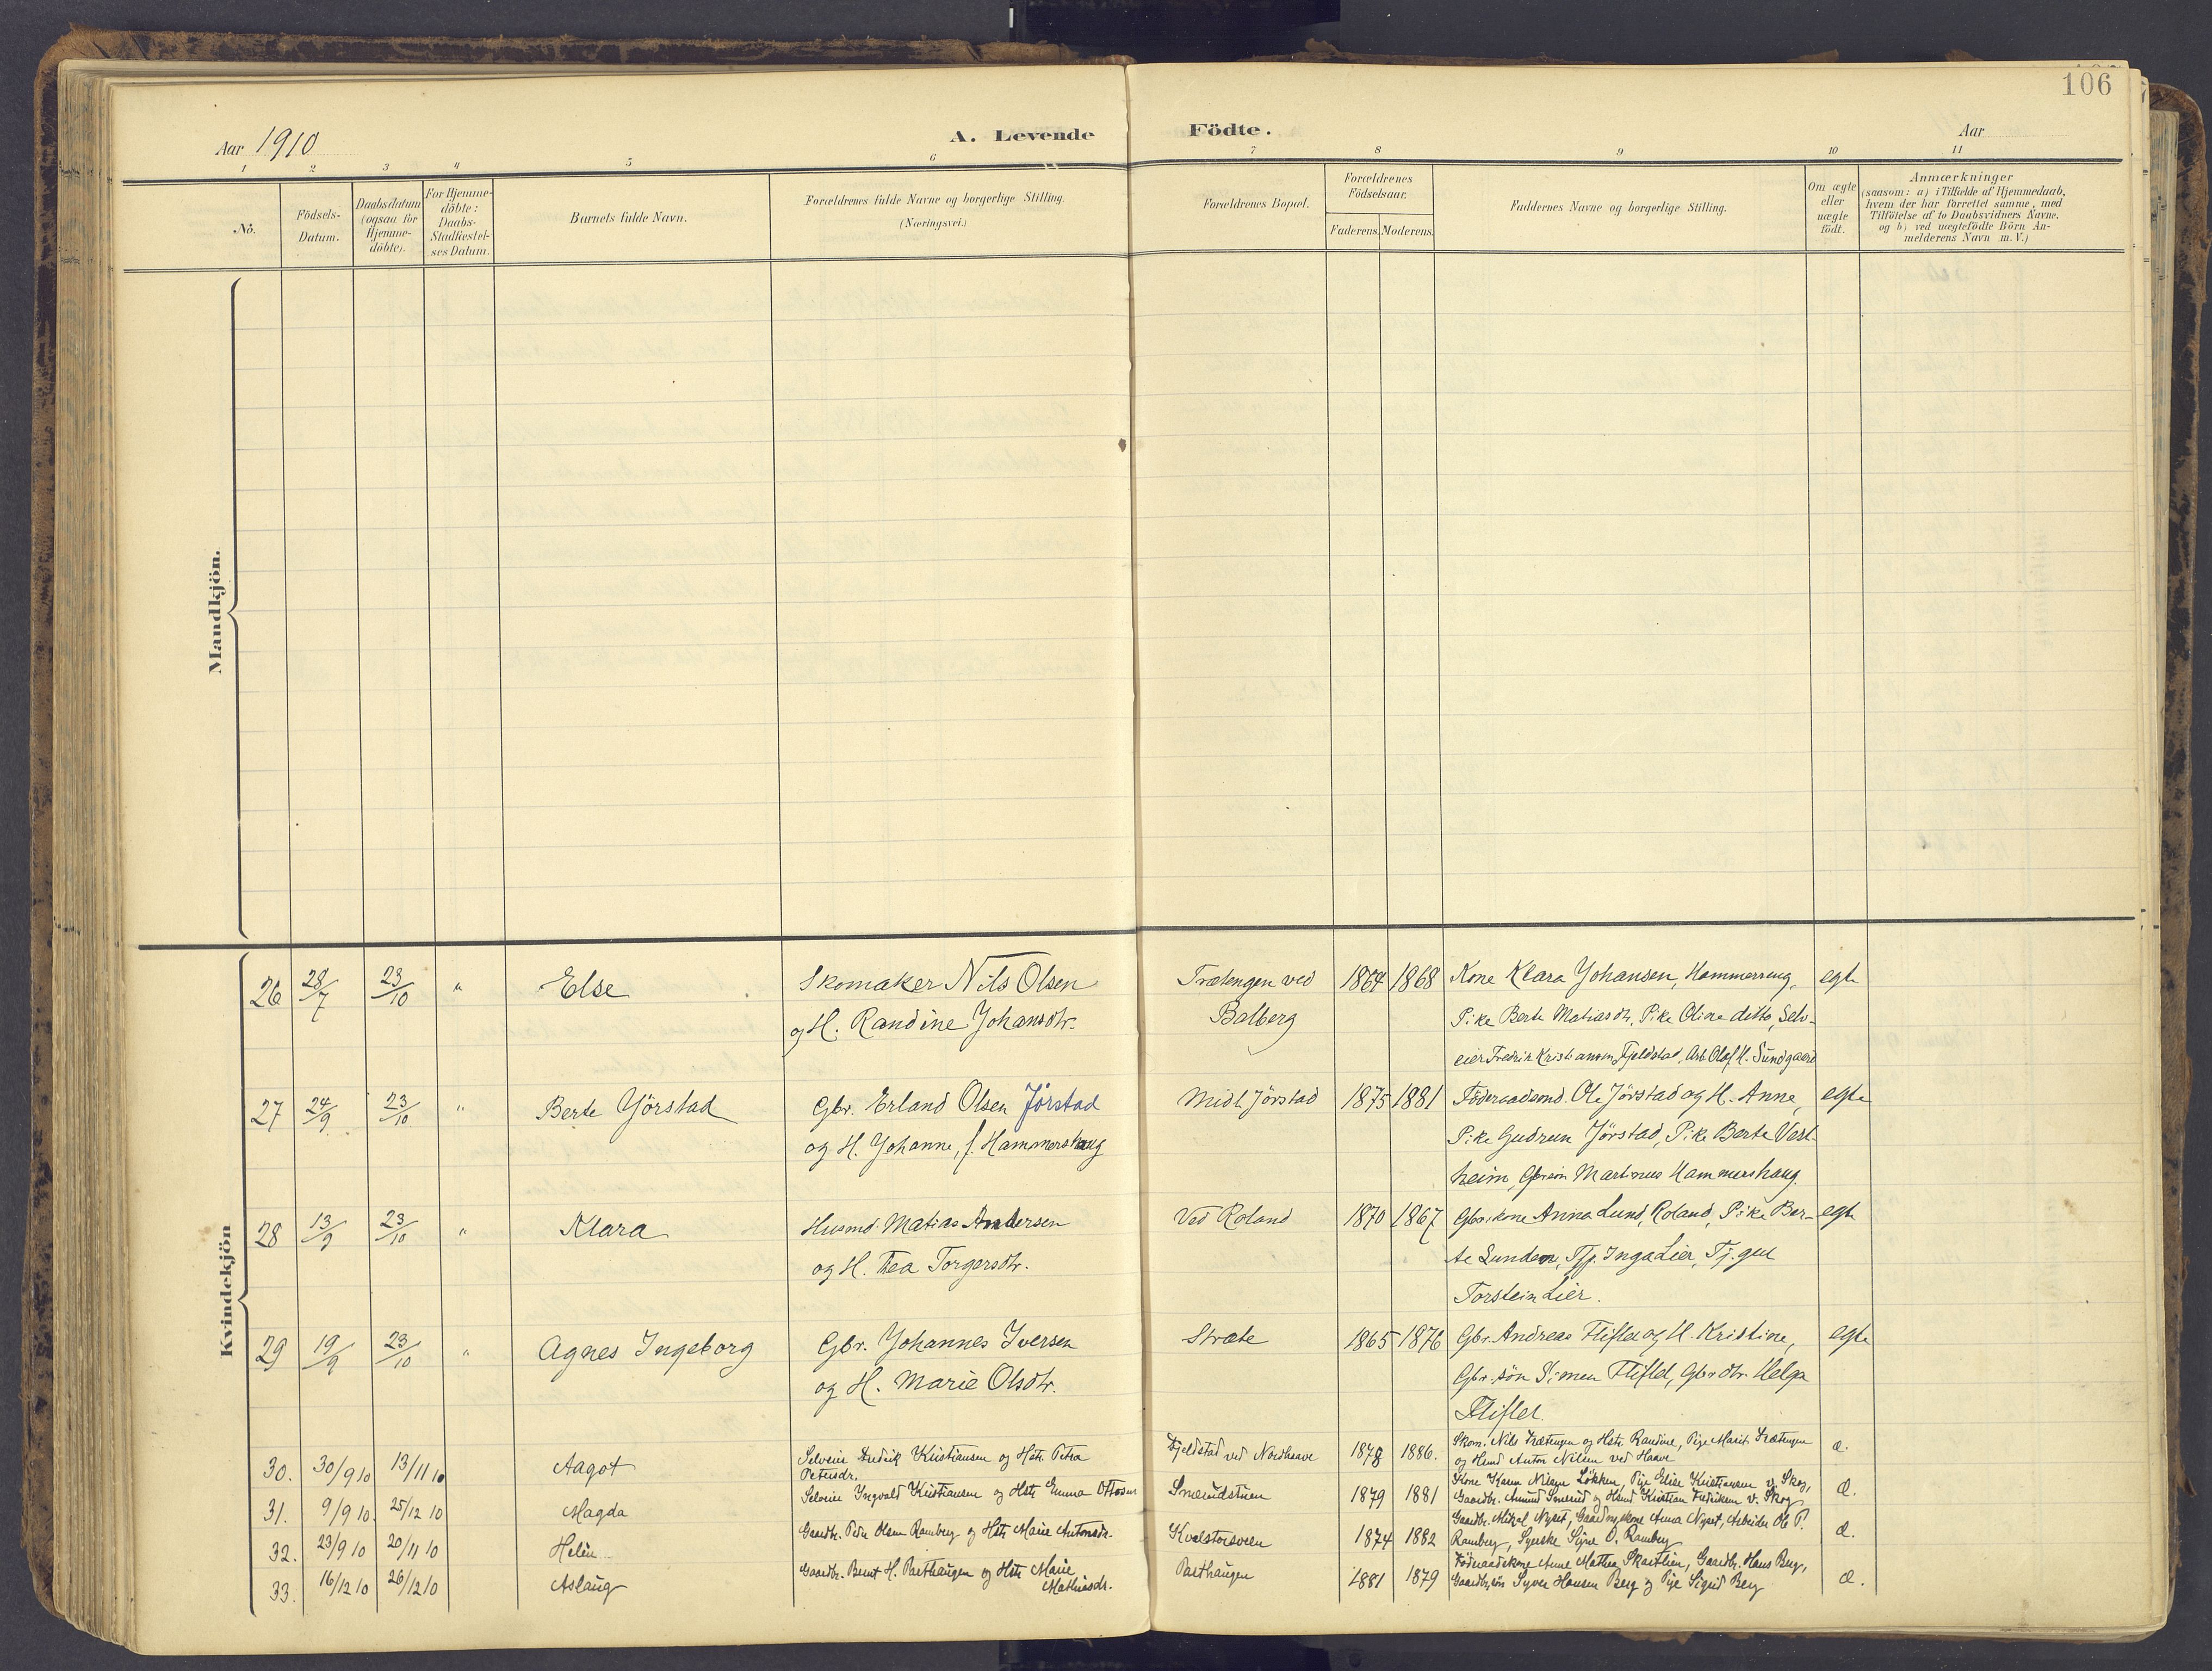 106
Aar 1910
A. Levende
Födte.
Aar
1 2 3 4 5 6 7 8 9 10 11
No.
Födsels-
Datum.
Daabsdatum
(ogsaa for
Hjemme-
döbte).
For Hjemme-
döbte:
Daabs-
Stadfæstel-
ses Datum.
Barnets fulde Navn.
Forældrenes fulde Navne og borgerlige Stilling.
(Næringsvei.)
Forældrenes Bopæl.
Forældrenes
Födselsaar.
Faderens. Moderens.
Faddernes Navne og borgerlige Stilling.
Om ægte
eller
uægte
födt.
Anmærkninger
(saasom: a) i Tilfælde af Hjemmedaab,
hvem der har forrettet samme, med
Tilföielse af to Daabsvidners Navne,
og b) ved uægtefödte Börn An-
melderens Navn m.V.)
Mandkjön.
Kvindekjön
26 28/7 23/10 " Else Skomaker Nils Olsen Trætengen ved 1864 1868 Kone Klara Johansen, Hammerreng, egte
og H. Randine Johansdtr. Balberg Pike Berte Matiasdtr, Pike Oline ditto, Selv-
eier Fredrik Kristiansen Fjeldstad, Arb. Olaf H. Sundgaard
27 24/9 23/10 " Berte Jörstad Gbr. Erland Olsen Jörstad Midt Jörstad 1875 1881 Föderaadsmd. Ole Jörstad og H. Anne, egte
og H. Johanne, f. Hammershaug Pike Gudrun Jörstad, Pike Berte Vest-
heim, Gbr.sön Martinus Hammershaug.
28 13/9 23/10 " Klara Husmd. Matias Andersen Ved Roland 1870 1867 Gbr.kone Anna Lund, Roland, Pike Ber- egte
og H. Thea Torgersdtr. te Lunden, Tjp. Inga Lier, Tj.gut
Torstein Lier.
29 19/9 23/10 " Agnes Ingeborg Gbr. Johannes Iversen Stræte 1865 1876 Gbr. Andreas Fliflet og H. Kristine, egte
og H. Marie Olsdtr. Gbr. sön Simen Fliflet, Gbr. dtr. Helga
Fliflet.
30. 30/9 10 13/11 10 Aagot Selveier Fredrik Kristiansen og Hstr. Petra Fjeldstad ved Nordhaave 1878 1886. Skom. Nils Trætengen og Hstr. Randine, Pige Marit Trætengen æ.
Petersdr. og Husmd Anton Nilsen ved Haave
31. 9/9 10 25/12 10 Magda Selveier Ingvald Kristiansen og Hstr Emma Ottosen Smerudstuen 1879 1881 Kone Karen Nilsen Løkken, Pige Elise Kristiansen v. Skog, æ.
Gaardbr. Amund Smerud og Husmd Kristian Fredriksen v. Skog
32. 23/9 10 20/11 10 Helén Gaardbr. Peder Olsen Ramberg og Hstr Marie Antonsdr. Kvelstorsveen 1874 1882 Gaardbr. Mikal Nyset, Gaardmskone Anna Nyset, Arbeider Ole P. æ.
Ramberg, Syerske Signe O. Ramberg
33. 16/12 10 26/12 10 Aslaug Gaardbr. Bernt H. Parthaugen og Hstr Marie Parthaugen 1881 1879 Föderaadskone Anne Mathea Skartlien, Gaardbr. Hans Berg, æ.
Mathiasdr. Gaardbrsön Syver Hansen Berg og Pige Sigrid Berg